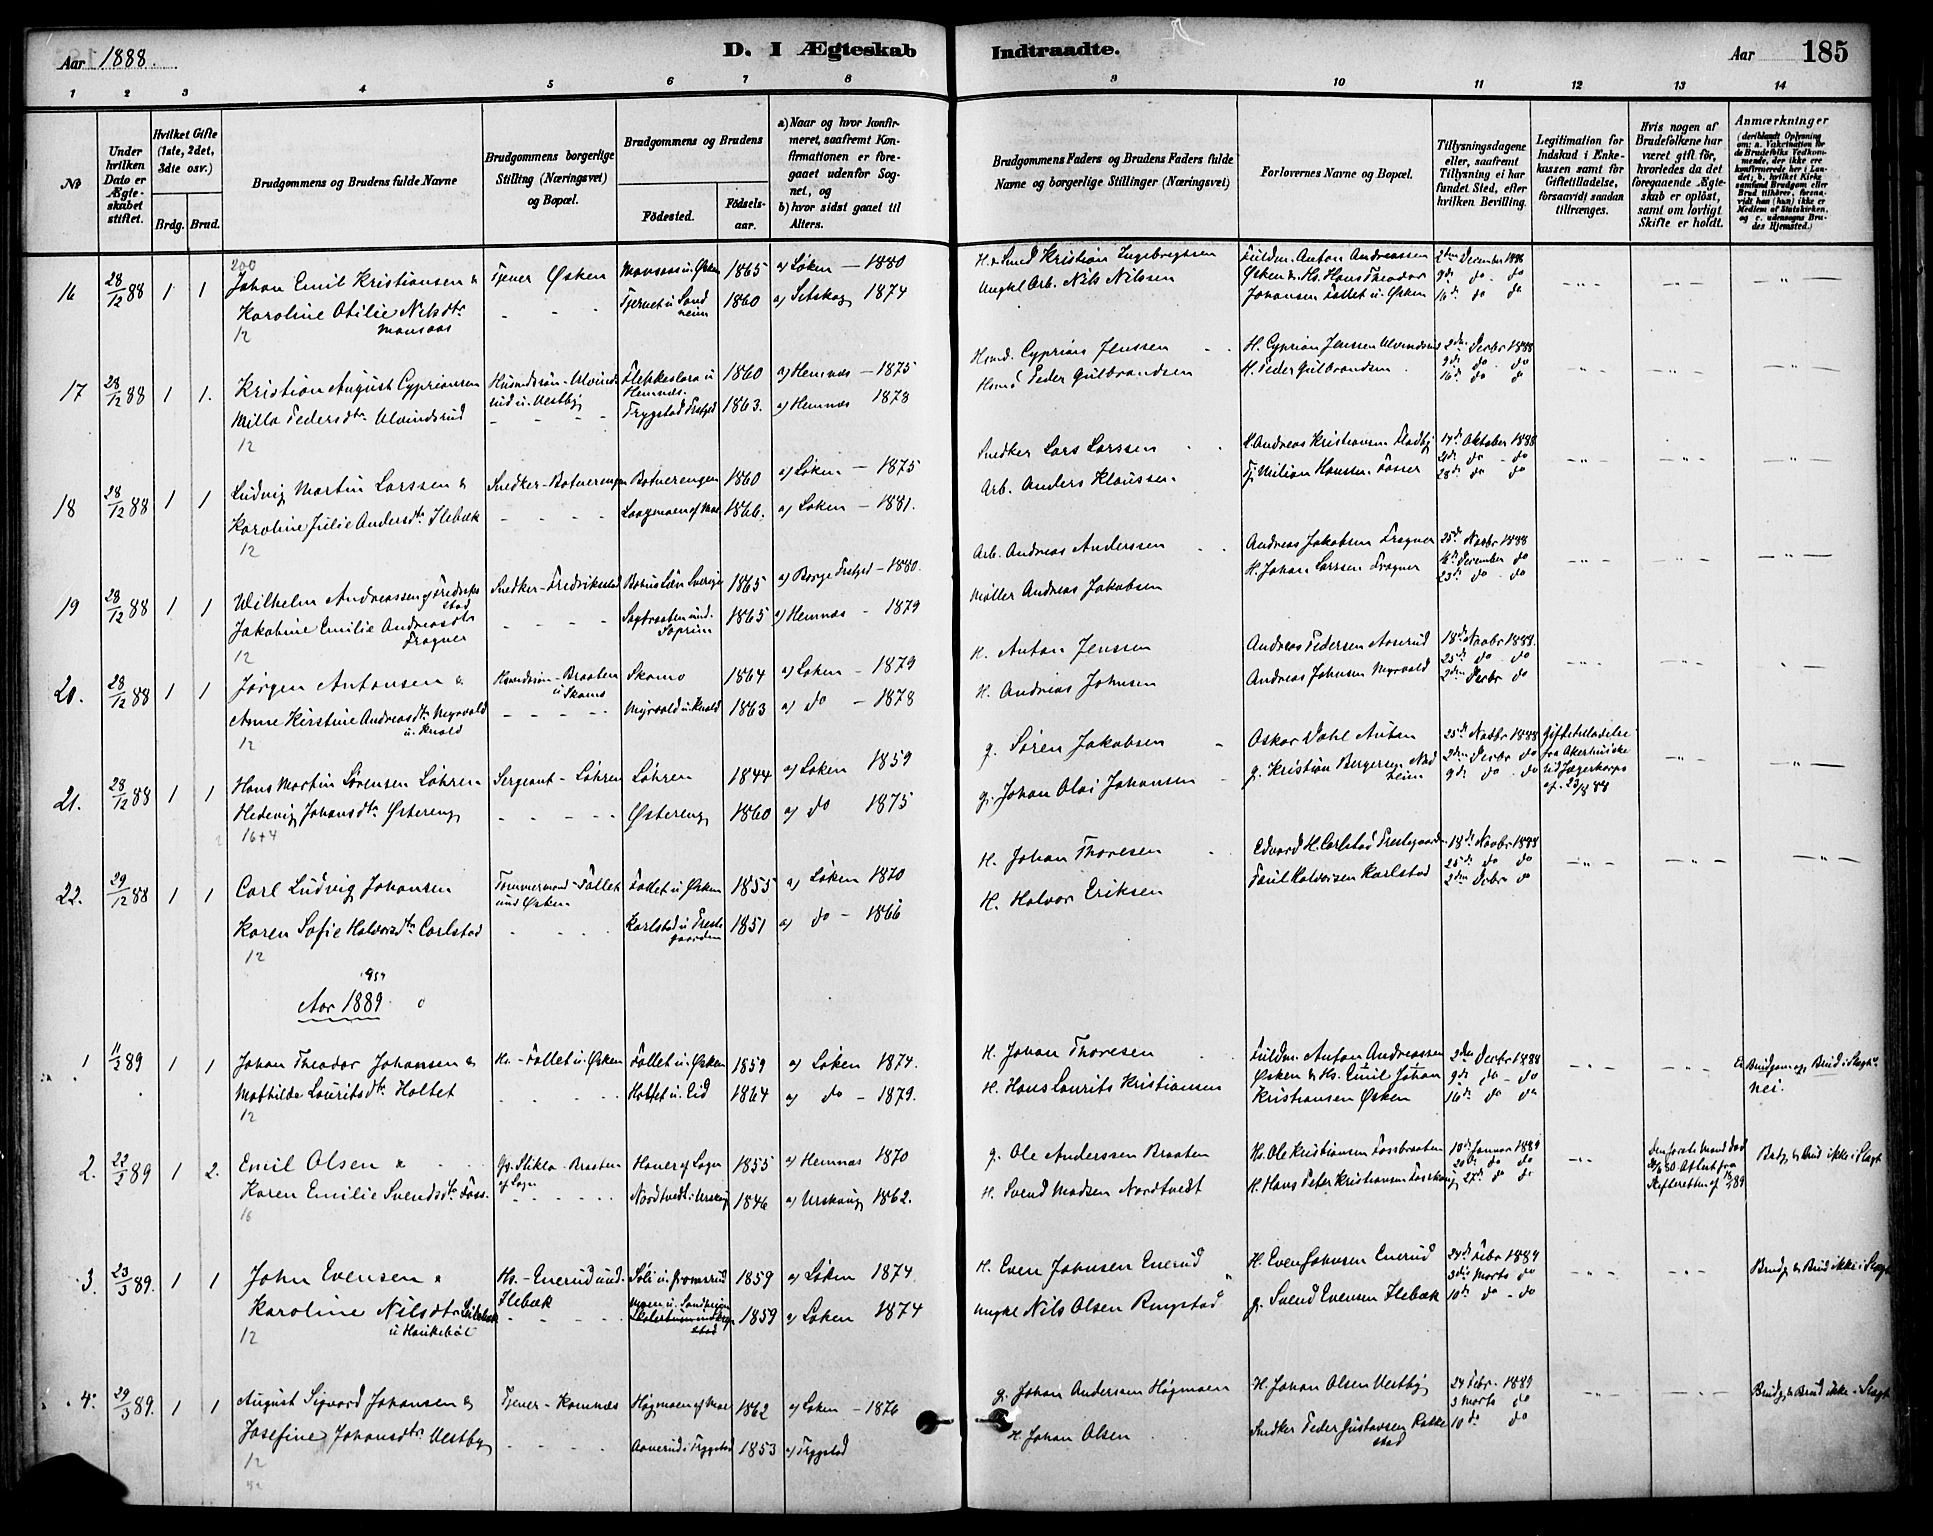 Aar 1888.
D. I Ægteskab Indtraadte.
Aar 185
1 2 3 4 5 6 7 8 9 10 11 12 13 14
No
Under hvilken Dato er Ægteskabet stiftet.
Hvilket Gifte (1ste, 2det, 3die osv.)
Brdg. Brud.
Brudgommens og Brudens fulde Navne
Brudgommens borgerlige Stilling (Næringsvei) og Bopæl.
Brudgommens og Brudens
Fødested.
Fødsels-aar.
a) Naar og hvor konfirmeret, saafremt Konfirmationen er foregaaet udenfor Sognet, og
b) hvor sidst gaaet til Alters.
Brudgommens Faders og Brudens Faders fulde Navne og borgerlige Stillinger (Næringsvei)
Forlovernes Navne og Bopæl.
Tillysningsdagene eller, saafremt Tillysning ei har fundet Sted, efter hvilken Bevilling.
Legitimation for Indskud i Enkekassen samt for Giftetilladelse, forsaavidt saadan tiltrænges.
Hvis nogen af Brudefolkene har været gift før, hvorledes da det foregaaende Ægteskab er opløst, samt om lovligt Skifte er holdt.
Anmærkninger (deriblandt Oplysning om: a. Vakcination for de Brudefolks Vedkommende, der ikke ere konfirmerede her i Landet; b. hvilket Kirkesamfund Brudgom eller Brud tilhører, forsaavidt han (hun) ikke er Medlem af Statskirken, og c. udensogns Brudes Hjemsted.)
200
16 28/12 88 1 1 Johan Emil Kristiansen & Tjener Østen Monsaas u. Østen 1865 a) Løken — 1880 Kristian Ingebregtsen Anton Andreassen 2den December 1888
Karoline Otilie Nilsdtr Monsaas Tjernet u. Sandneim 1860 a) Setskog 1874 Ungkl Arb. Nils Nilsen Østen & Hs. Hans Theodor 9de do do
Johansen Follet u. Østen 16de do do
12
17 28/12 88 1 1. Kristian August Cypriansen Husmdssøn - Ulvindsrud u. Vestby Hemnæs 1860 a) Hemnæs — 1875 Husmd. Cyprian Jenssen H. Cyprian Jenssen Ulvindsrud 2den Decbr 1888
Milla Pedersdtr Ulvindsrud Trygstad Prstgd 1863. a) Hemnæs 1878 Husmd Peder Gulbrandsen H. Peder Gulbrandsen 9de do do
16de do do
12
18 28/12 88 1 1 Ludvig Martin Larssen & Snedker - Botnerengen Botnerengen 1860 a) Løken — 1875 Snedker Lars Larssen Andreas Kristiansen Fladby 14de Oktober 1888
Karoline Julie Andersdtr Ilebæk 1866. a) Løken — 1881. Arb. Anders Klaussen. Milian Hanssen Fosser 21de do do
28de do do
12
19 28/12 88 1 1 Wilhelm Andreassen af Fredriksstad Snedker - Fredriksstad Sverige 1865 a) Borge Prstgd - 1880. Arb. Andreas Anderssen Andreas Jakobsen Fragner 25de Novbr 1888
Jakobine Emilie Andreasdtr Fragner 1865 a) Hemnæs - 1879 Møller Andreas Jakobsen H. Johan Larssen Fragner 16de December do
23de do do
12
20. 28/12 88 1 1 Jørgen Antonsen & Husmdssøn - Braaten u. Skamo Skamo 1864 a) Løken - 1879 H. Anton Jenssen Andreas Pedersen Aaserud 18de Novbr 1888.
Anne Kirstine Andreasdtr Myrvold u. Kvald Myrvold u. Kvald 1863 a) do - 1878 H. Andreas Johnsen Andreas Johnsen Myrvold 25de do do
2den Decbr do
12
21. 28/12 88 1 1 Hans Martin Sørensen Løhren Sergeant - Løhren Løhren 1844 a) Løken 1859 g. Søren Jakobsen Oskar Dahl Auten 25de Novbr 1888 Giftetilladelse fra Akershusiske Jægerkorps
Hedevig Johansdtr Østereng Østereng 1860 a) do 1875 g. Johan Olai Johansen g. Kristian Bergersen 2den Decbr do
9de do do
16+4
22. 29/12 88 1 1 Carl Ludvig Johansen Tømmermand - Follet und Østen Follet u. Østen 1855 a) Løken 1870 H. Johan Thoresen Edvard H. Carlstad Prestegaarden 18de Novbr 1888
Karen Sofie Halvorsdtr Carlstad Karlstad u. Prestegaarden 1851 a) do - 1866 H. Halvor Eriksen Halvorsen Karlstad 25de do do
2den Decbr do
12
Aar 1889
1 11/3 89 1 1 Johan Theodor Johansen & Hs. - Follet u. Østen Follet u. Østen 1859 a) Løken 1874. H. Johan Thoresen Anton Andreassen 2den Decbr 1888 Ei Brudgom og Brud i Slægt. nei.
Mathilde Lauritsdtr Holtet Holtet u. Eid 1864 a) do - 1879. H. Hans Laurits Kristiansen Østen & Hs. Emil Johan 9de do - do
Kristiansen Østen 16de do do
12
2. 22/3 89 1 2. Emil Olsen & Braaten 1855 a) Hemnæs 1870 g. Ole Anderssen Braaten Hs. Ole Kristiansen Fossbraaten 13de Januar 1889 Brdg. & Brud ikke i Slægt
Karen Emilie Svendsdtr Foss. Nordtvedt i Urskoug 1846 a) Urskoug 1862. H. Svend Madsen Nordtvedt H. Hans Peter Kristiansen 20de do do
27de do do
16
3. 23/3 89. 1 1 John Evensen & Hs. - Enerud und. Ilebæk 1859 a) Løken 1874. H. Even Johnsen Enerud H. Even Johnsen Enerud 24de Febr 1889 Brudg. & Brud ikke i Slægt
Karoline Nilsdtr u. Haukebøl 1859 a) Løken 1874 Ungkl Nils Olsen Ringstad g. Svend Evensen Ilebæk 3die Marts do
10de do - do
12
4. 29/3 89. 1 1 August Sigvard Johansen & Tjener - Komnæs Høgmoen 1862 a) Løken - 1876 g. Johan Andersen Høgmoen H. Johan Olsen Vestby 24 Febr. 1889 Brudg. & Brud ikke i Slægt
Josefine Johansdtr Vestby Trygstad 1853 a) Trygstad H. Johan Olsen Snedker Peder Gustavsen Rakkestad 3 Marts do
10 do do
12